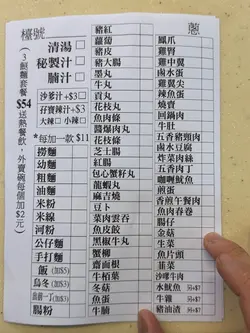 檯號
蔥
(3餸麵套餐$54送熱餐飲，外賣碗每個加$2元)
清湯□
秘製汁□
腩汁□
沙爹汁+$3□
孖寶辣汁+$3□
大辣□小辣□
*每加一款$11
撈麵
幼麵
粗麵
油麵
米粉
米線
河粉
公仔麵
手打麵
飯(加$5)
烏冬(加$3)
腸粉
豬紅
蘿蔔
豬皮
豬大腸
墨丸
牛丸
貢丸
花枝丸
魚肉條
醬爆肉丸
花枝餃
芝士腸
蟹籽包
包心蟹籽丸
龍蝦丸
麻吉燒
豆卜
菜肉雲吞
魚皮餃
黑椒牛丸
蟹柳
齋面根
牛栢葉
冬菇
魚蛋
牛腩
鳳爪
雞腎
雞中翼
鹵水蛋
雞翼尖
辣魚蛋
燒賣
回鍋肉
牛肚
五香豬頸肉
鹵水豆腐
炸菜肉絲
五香肉丁
咖喱魷魚
煎蛋
香煎午餐肉
魚肉春卷
腸仔
金菇
生菜
魚片頭
韮菜
沙嗲牛肉
水魷魚 另+$7
牛雜 另+$7
豬油渣 另+$7